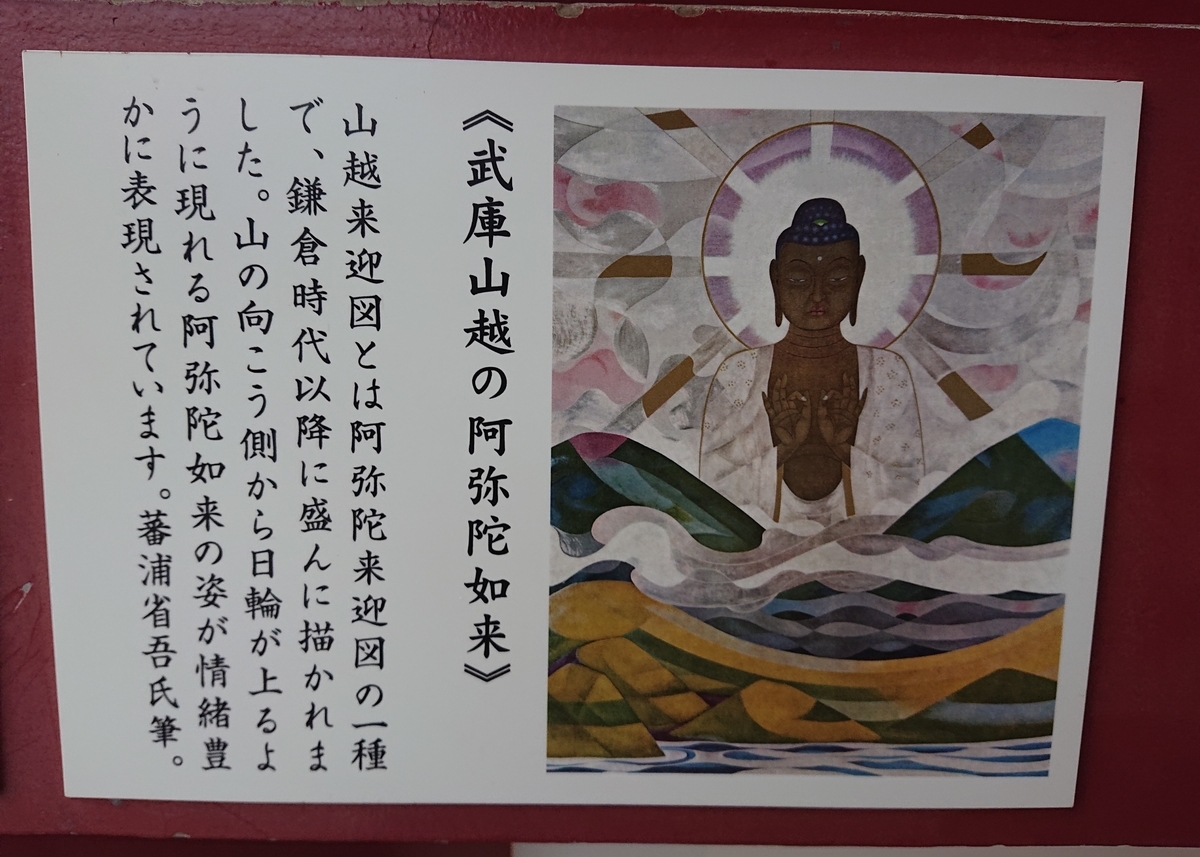 《武庫山越の阿弥陀如来》
山越来迎図とは阿弥陀来迎図の一種
で、鎌倉時代以降に盛んに描かれま
した。山の向こう側から日輪が上るよ
うに現れる阿弥陀如来の姿が情緒豊
かに表現されています。蕃浦省吾氏筆。